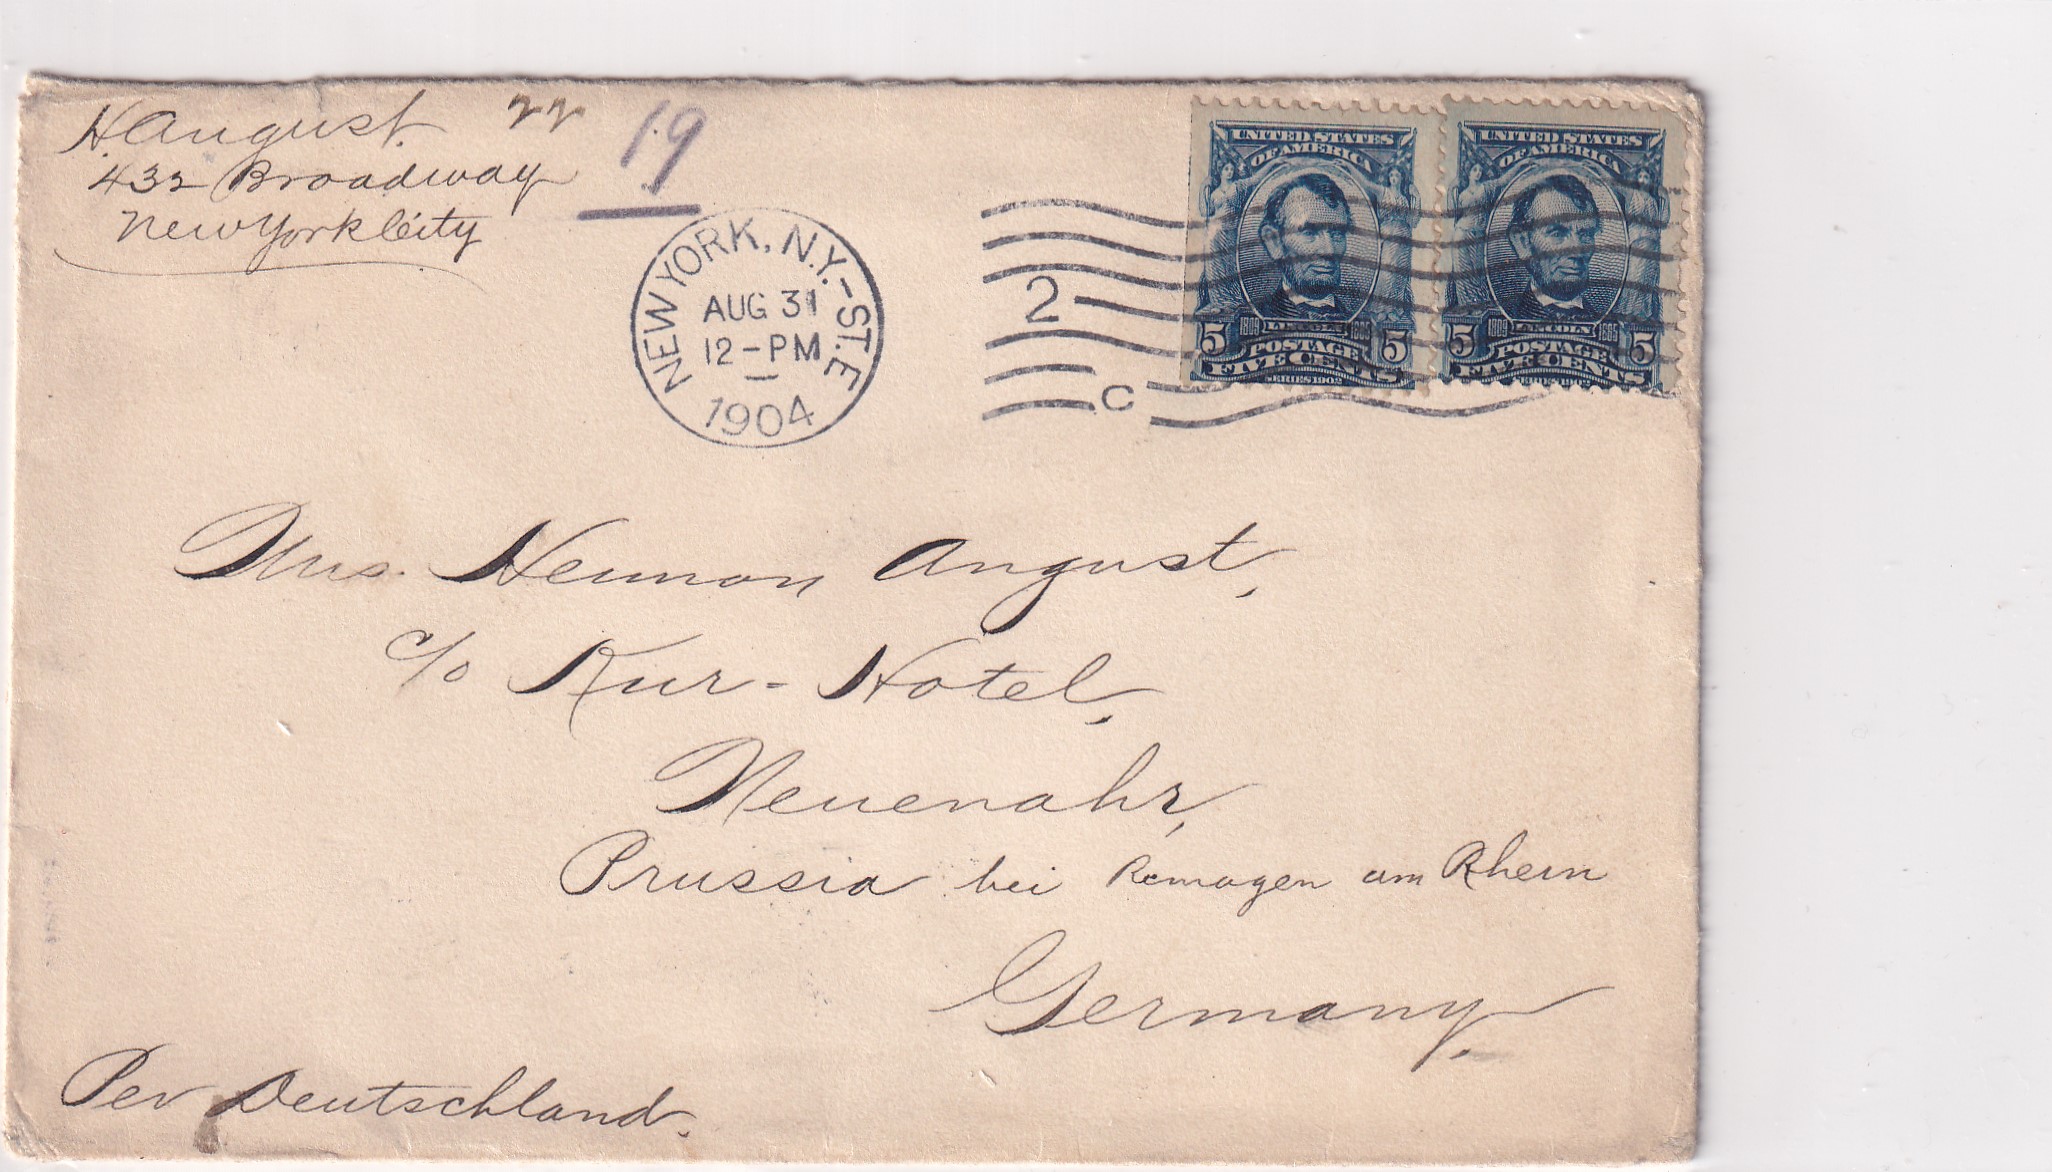 H. August.
432 Broadway
New York City
19
NEW YORK, N.Y.-ST.E
AUG 31
12-PM
1904
2
C
UNITED STATES
OF AMERICA
1809 LINCOLN 1865
5 POSTAGE 5
FIVE CENTS
SERIES 1902
UNITED STATES
OF AMERICA
1809 LINCOLN 1865
5 POSTAGE 5
FIVE CENTS
Mrs. Herman August,
c/o Kur-Hotel,
Neuenahr,
Prussia bei Remagen am Rhein
Germany.
Per Deutschland.